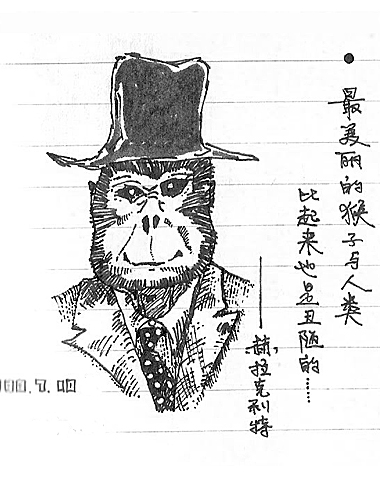 最美丽的猴子与人类
比起来也是丑陋的……
——赫拉克利特